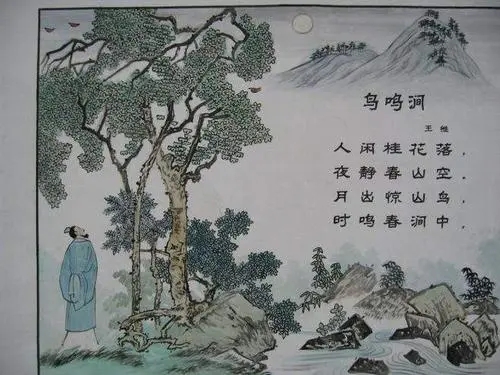 鸟鸣涧
王维
人闲桂花落，
夜静春山空．
月出惊山鸟，
时鸣春涧中，